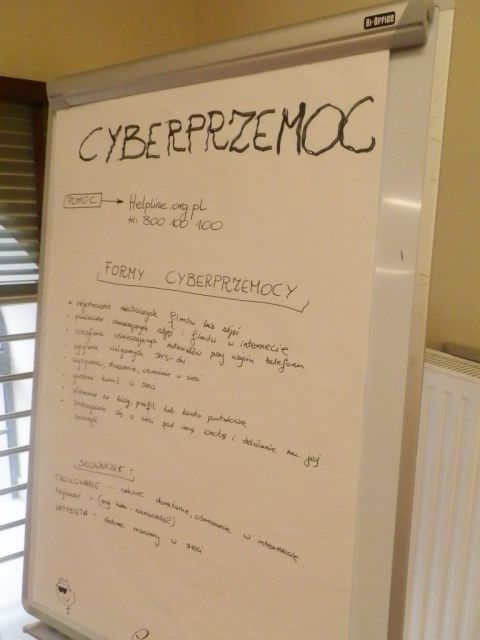 Bi-Office
CYBERPRZEMOC
POMOC → Helpline.org.pl
tel: 800 100 100
FORMY CYBERPRZEMOCY
• rejestrowanie niechcianych filmów lub zdjęć
• publikowanie zdjęć i filmów w internecie
• ośmieszających materiałów przy użyciu telefonu
• wulgarnych SMS-ów
• straszenie, obrażanie w sieci
• w sieci
• na blog, profil lub konto pocztowe
• się w sieci pod inną osobę i działanie na jej
SŁOWNICZEK:
TROLLOWANIE - celowe ośmieszanie w internecie
hejtować - (ang. hate - nienawidzić)
NETYKIETA - dobre maniery w sieci